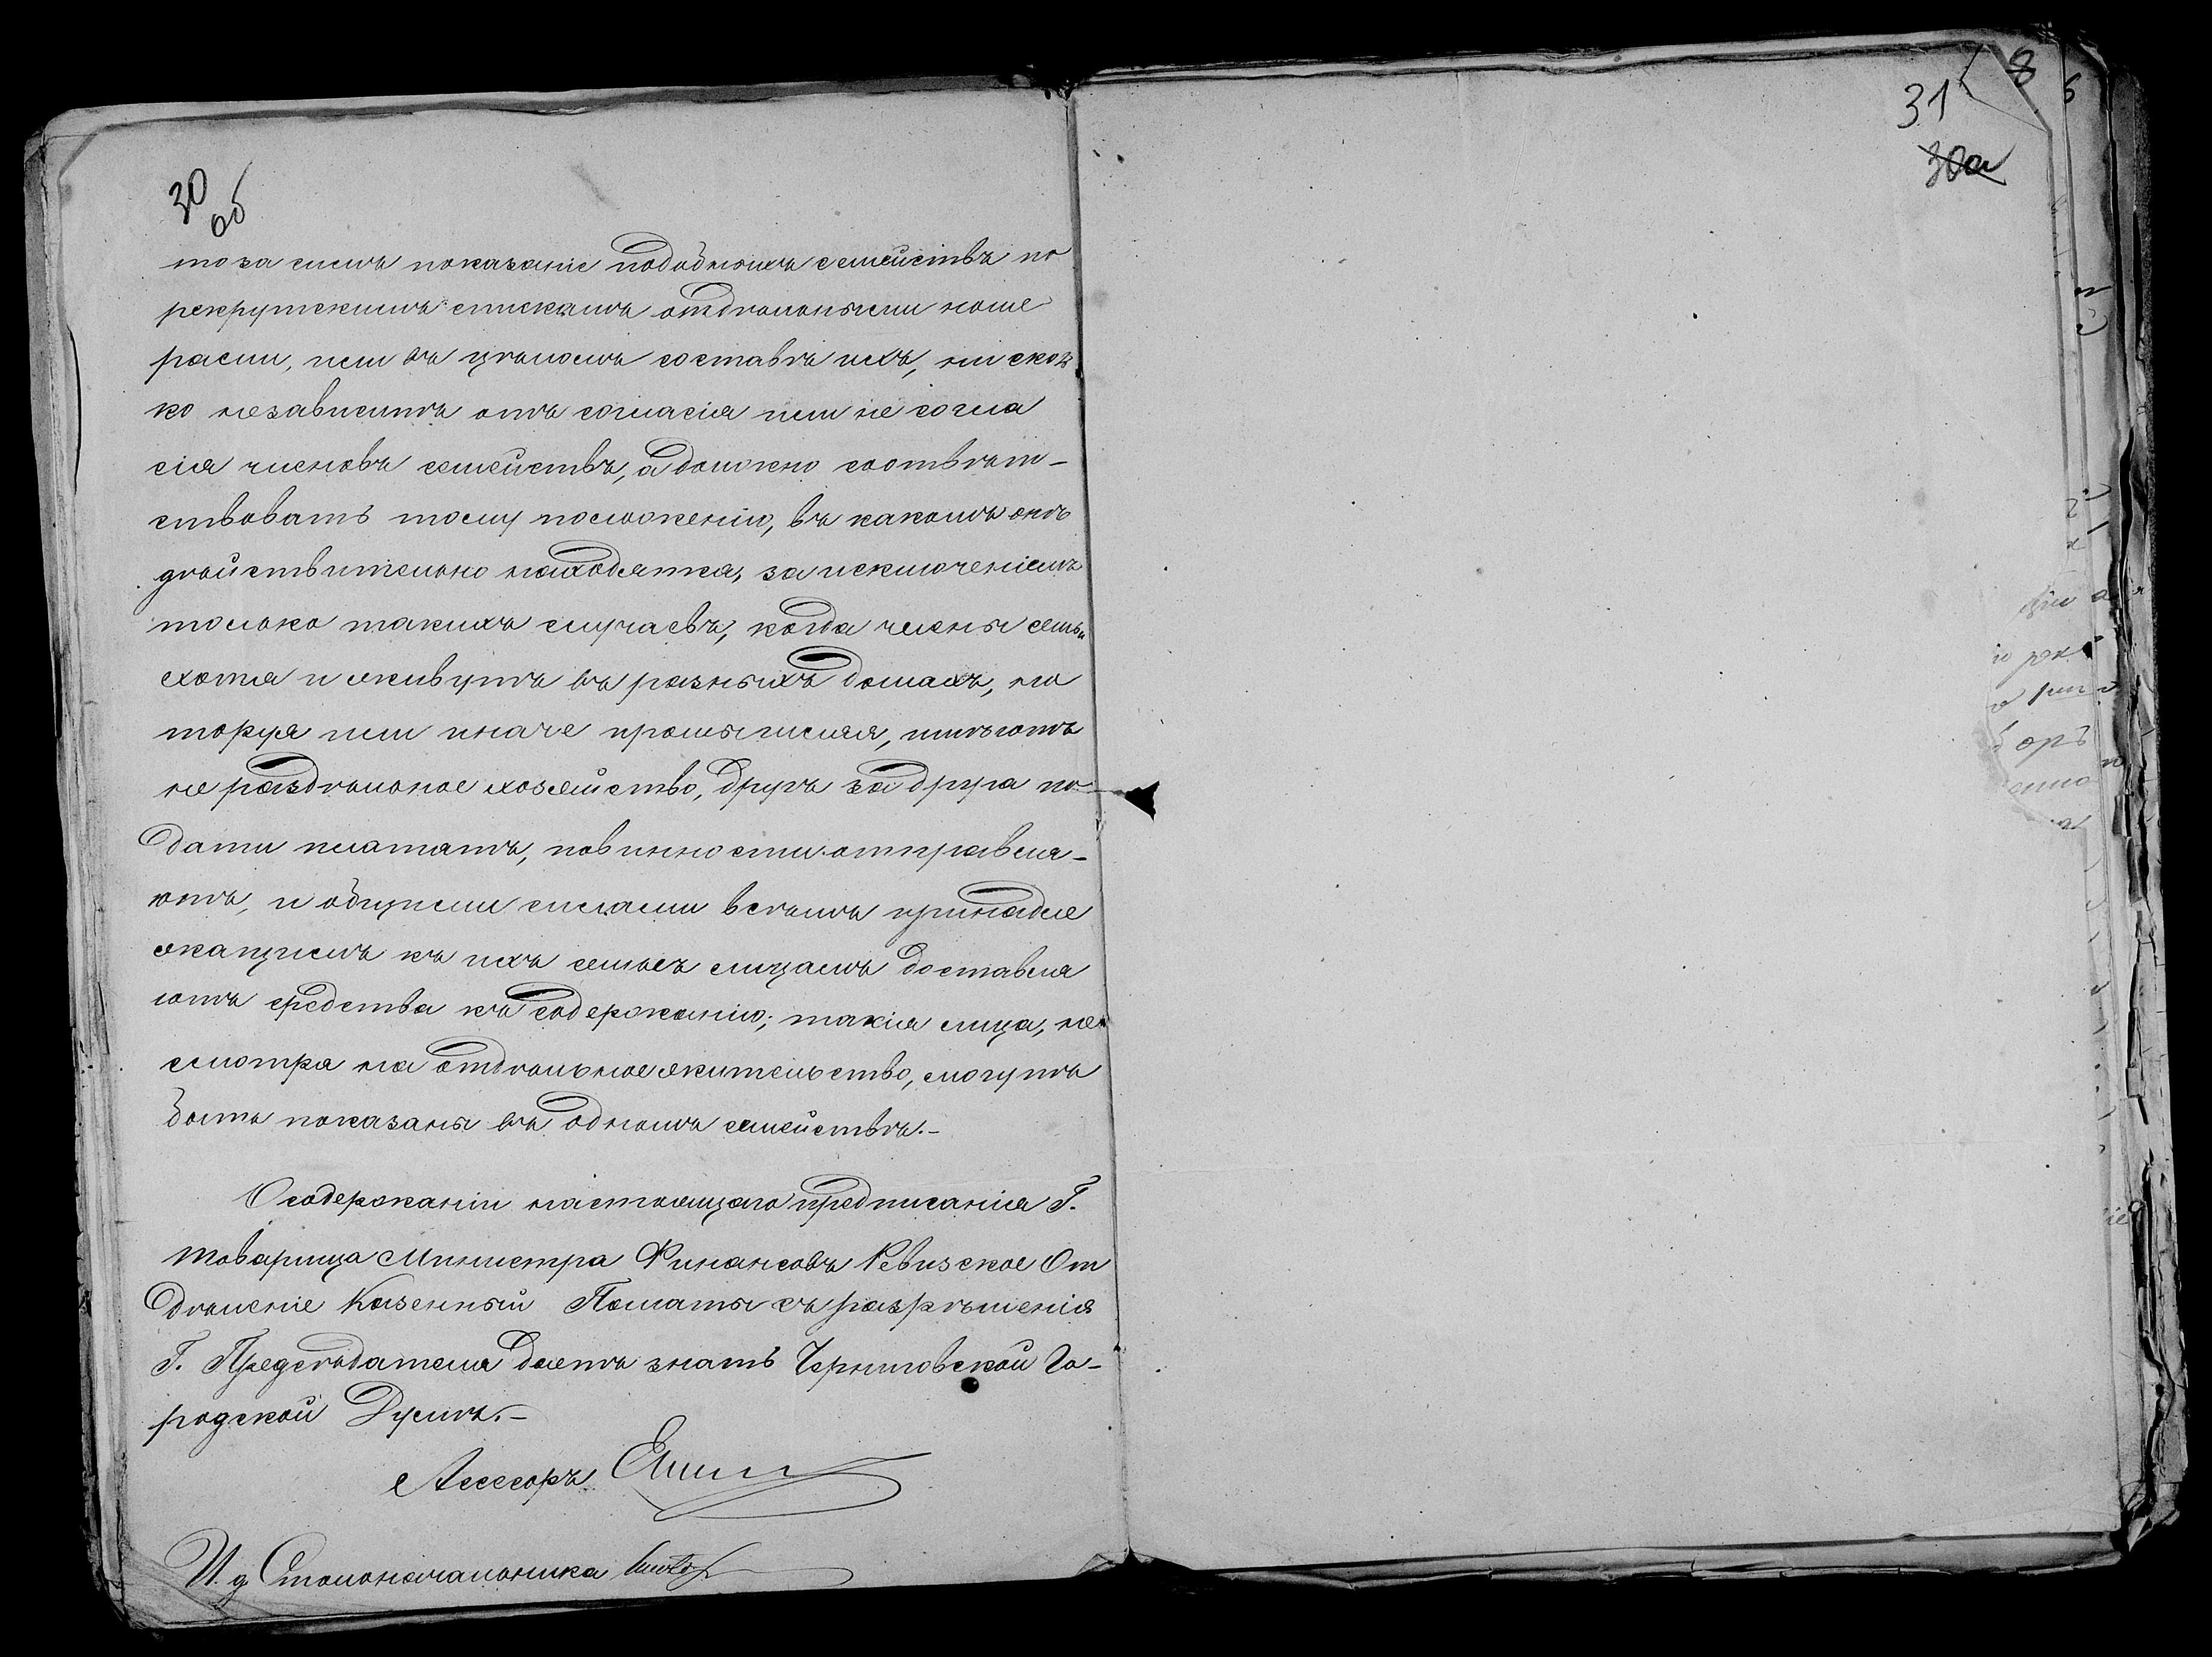 30
об
то за симъ показаніе подобныхъ семействъ по
рекрутскимъ спискамъ отдѣльными номе
рами, или въ цѣломъ составѣ ихъ, ни сколь
ко независитъ отъ согласія или не согла
сія членовъ семействъ, а должно соотвѣт-
ствовать тому положенію, въ какомъ онѣ
дѣйствительно находятся, за исключеніемъ
только такихъ случаевъ, когда члены семьи
хотя и живутъ въ разныхъ домахъ, но
торгуя или иначе промышляя, имѣютъ
не раздѣльное хозяйство, другъ за друга по
дати платятъ, повинности отправля-
ютъ, и общими силами всѣмъ принадле
жащимъ къ ихъ семьѣ лицамъ доставля
ютъ средства къ содержанію; такія лица, не
смотря на отдѣльное жительство, могутъ
быть показаны въ одномъ семействѣ.-
О содержаніи настоящаго предписанія Г.
Товарища Министра Финансовъ Ревизское От
дѣленіе Казенный Палаты съ разрѣшенія
Г. Предсѣдателя даетъ знать Черниговской Го-
родской Думѣ.-
Ассесоръ
И. д. Столоначальника
31
30а
8
6